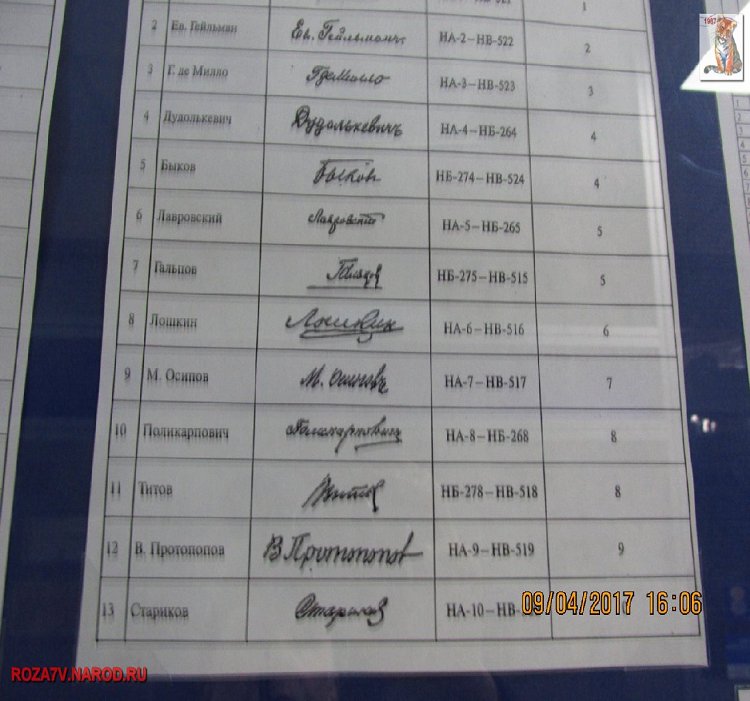 1
1987
2 Ев. Гейльман Ев. Гейльманъ НА-2-НВ-522 2
3 Г. де Милло ГдеМилло НА-3-НВ-523 3
4 Дудолькевич Дудолькевичъ НА-4-НБ-264 4
5 Быков Быков НБ-274-НВ-524 4
6 Лавровский Лавровский НА-5-НБ-265 5
7 Гальцов Гальцов НБ-275-НВ-515 5
8 Лошкин Лошкин НА-6-НВ-516 6
9 М. Осипов М. Осиповъ НА-7-НВ-517 7
10 Поликарпович Поликарпович НА-8-НБ-268 8
11 Титов Титов НБ-278-НВ-518 8
12 В. Протопопов В Протопопов НА-9-НВ-519 9
13 Стариков Стариков НА-10-НВ-
09/04/2017 16:06
ROZA7V.NAROD.RU